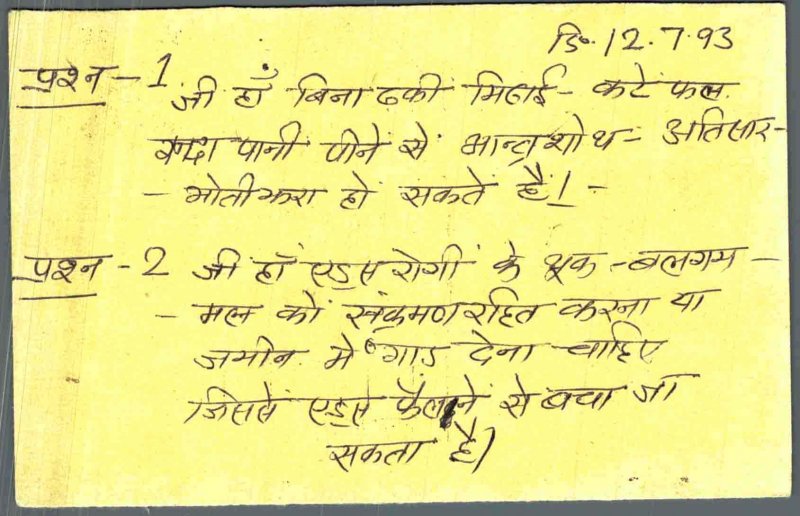 दि॰ 12.7.93
प्रश्न - 1
जी हाँ बिना ढकी मिठाई - कटे फल
गन्दा पानी पीने से आन्त्रशोथ - अतिसार -
- मोतीझरा हो सकते हैं। -
प्रश्न - 2 जी हाँ एड्स रोगी के थूक - बलगम -
- मल को संक्रमण रहित करना या
जमीन मे गाड देना चाहिए
जिससे एड्स फैलने से बचा जा
सकता है।